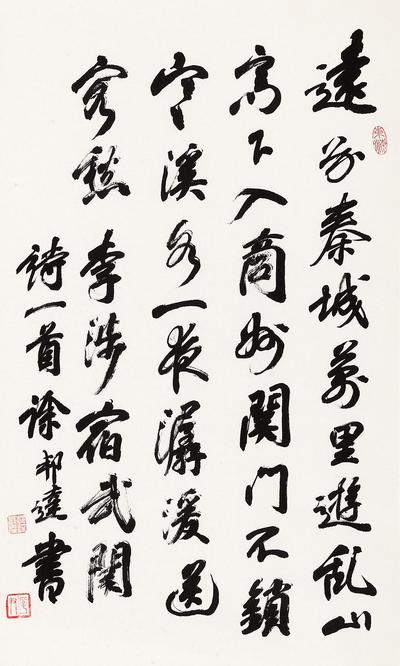 遠別秦城萬里遊乱山
高下入商州関门不鎖
寒溪水一夜潺湲送
客愁 李涉宿武関
詩一首 徐邦達書